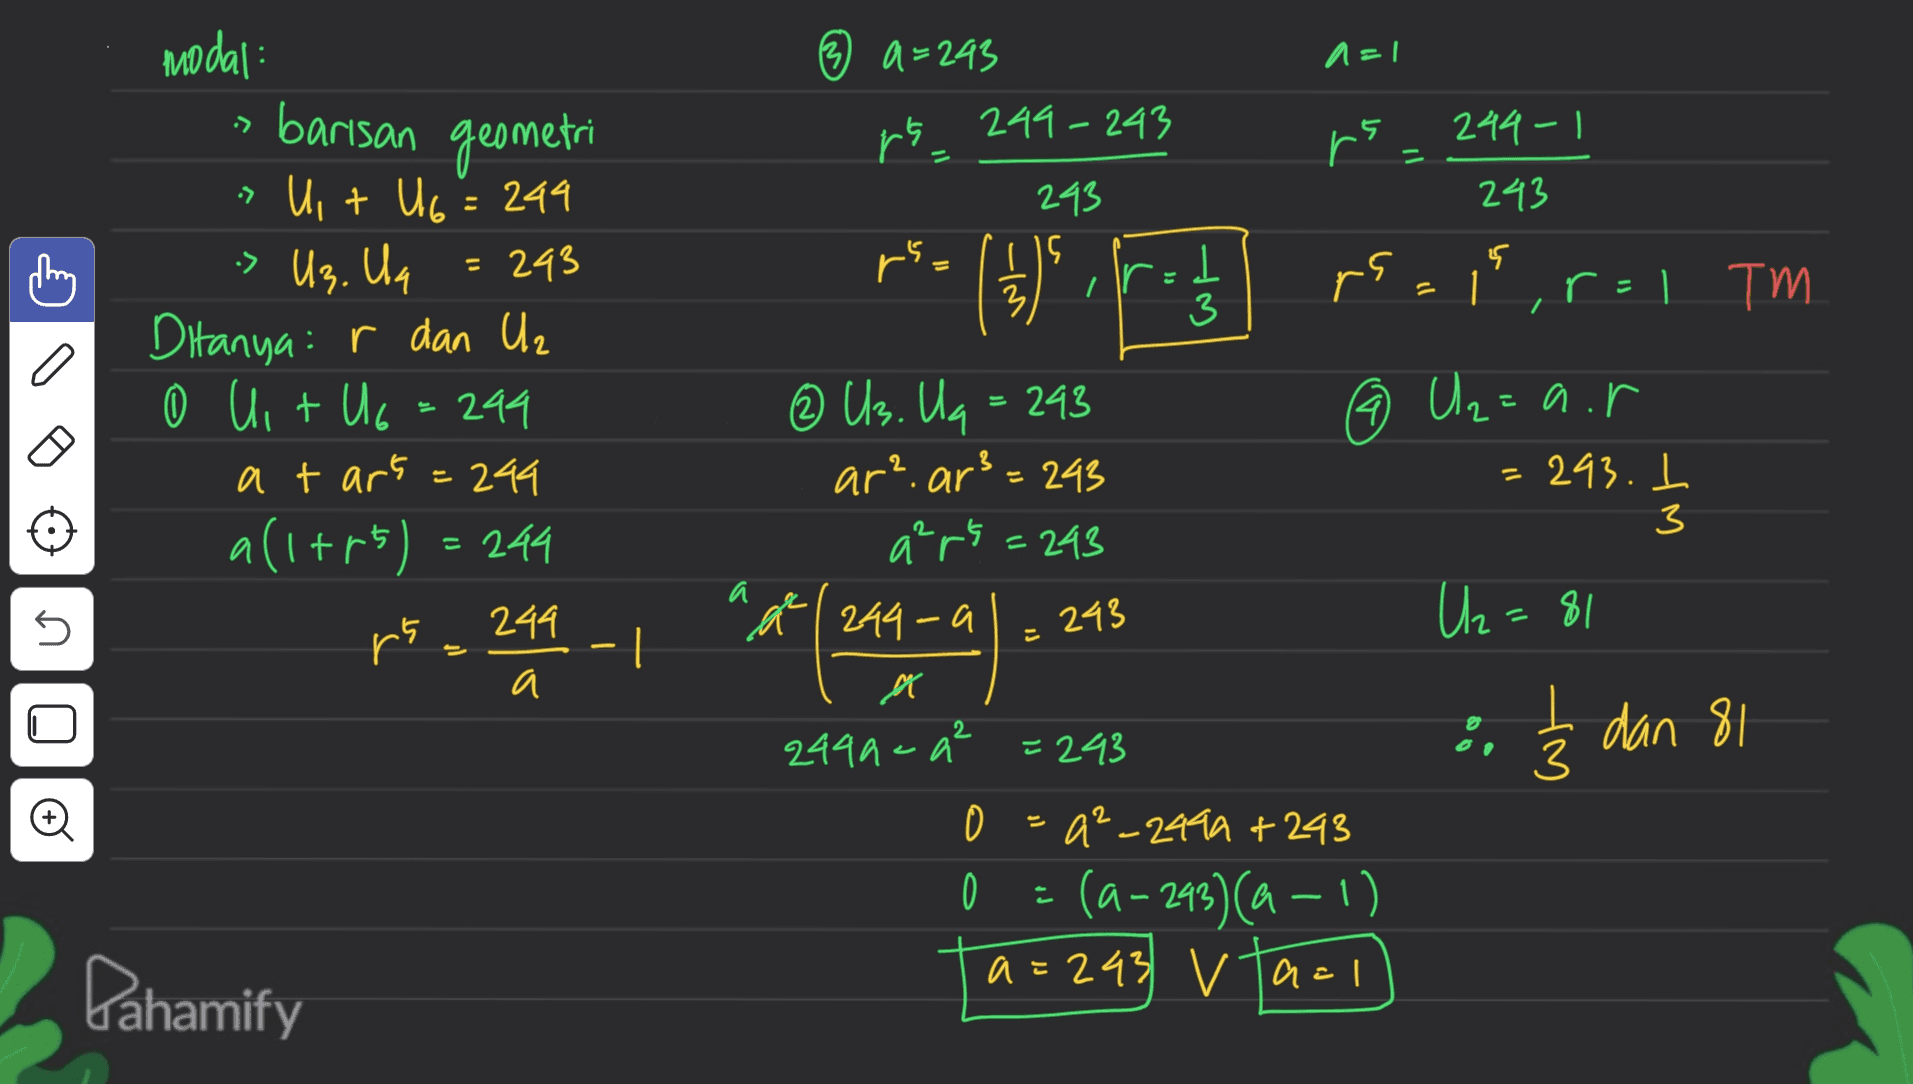 modal:
-> barisan geometri
-> U₁ + U₆ = 244
-> U₃. U₄ = 243
Ditanya: r dan U₂
① U₁ + U₆ = 244
a + ar⁵ = 244
a(1+r⁵) = 244
r⁵ = 244/a - 1
② U₃. U₄ = 243
ar². ar³ = 243
a²r⁵ = 243
a a² (244-a / a) = 243
244a - a² = 243
0 = a² - 244a + 243
0 = (a-243)(a-1)
a = 243 V a = 1
③ a = 243
r⁵ = 244 - 243 / 243
r⁵ = (1/3)⁵, r = 1/3
a = 1
r⁵ = 244 - 1 / 243
r⁵ = 1⁵, r = 1 TM
④ U₂ = a.r
= 243. 1/3
U₂ = 81
∴ 1/3 dan 81
Pahamify